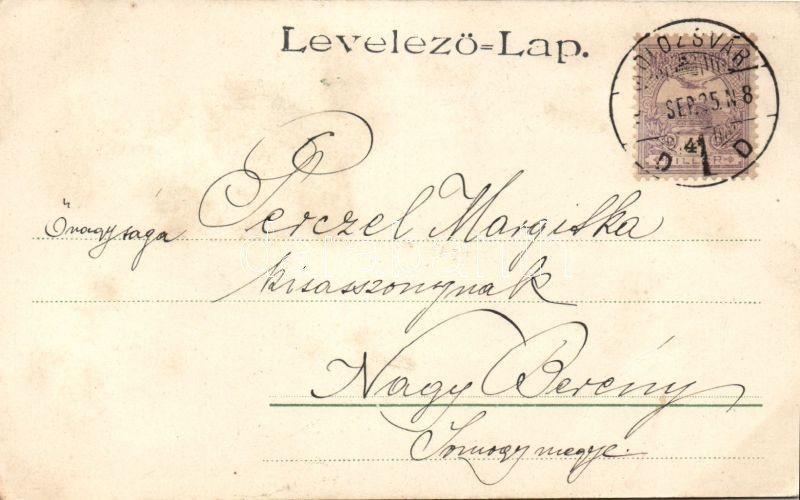 Levelező=Lap.
SEP. 25. N 8
D 1 D
4
Őnagysaga Perczel Margitka
kisasszonynak
Nagy Berény
Somogymegye.